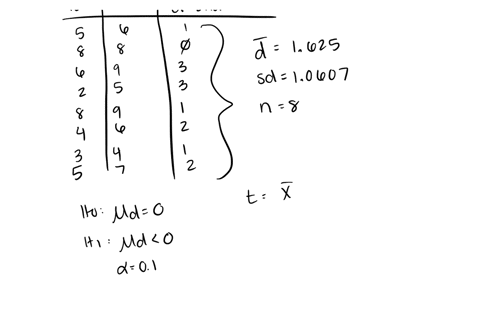 5 6 1
8 8 0
6 9 3
2 5 3
8 9 1
4 6 2
3 4 1
5 7 2
d̅ = 1.625
sd = 1.0607
n = 8
H0: μd = 0
H1: μd < 0
α = 0.1
t = x̅